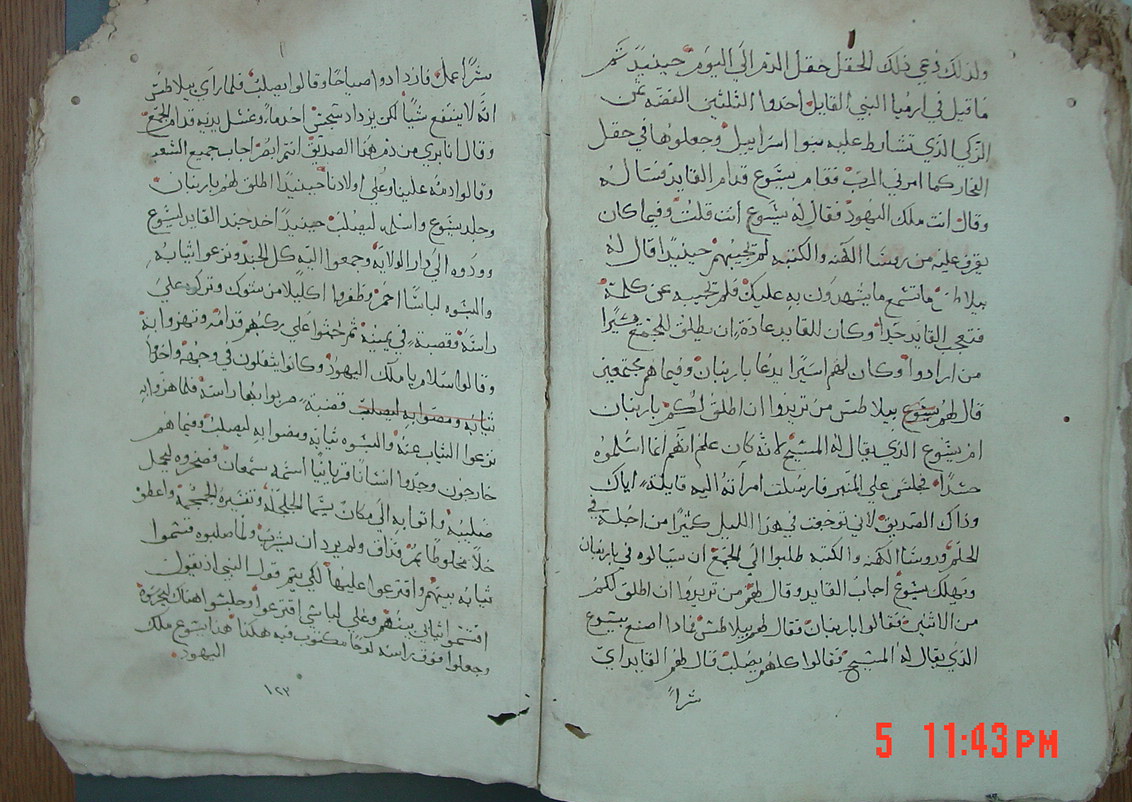 ولذلك دعي ذلك الحقل حقل الدم الى اليوم حينيذ تم
ما قيل في ارميا النبي القايل اخذوا الثلثين الفضه ثمن
الزكي الذي تشارط عليه بنوا اسراييل وجعلوها في حقل
الفخار كما امرني الرب فقام يشوع قدام القايد فساله
وقال انت ملك اليهود فقال له يشوع انت قلت وفيما كان
يقرف عليه من روسا الكهنه والكتبه لم يجيبهم حينيذا قال له
بيلاطس ما تسمع ما يشهدون به عليك فلم يجيبه عن كلمة
فتعجب القايد جدا وكان للقايد عادة ان يطلق للجمع اسيرا
من ارادوا وكان لهم اسيرا يدعا باربنان وفيما هم مجتمعين
قال لهم يشوع بيلاطس من تريدوا ان اطلق لكم باربنان
ام يشوع الذي يقال له المسيح لانه كان علم انهم انما اسلموه
حسدا فجلس علي المنبر فارسلت امراته اليه قايلة اياك
وذاك الصديق لاني توجعت في هذا الليل كثيرا من اجله في
الحلم وروسا الكهنه والكتبه طلبوا الي الجمع ان سيالوه في باربنان
ويهلك يشوع اجاب القايد وقال لهم من تريدوا ان اطلق لكم
من الاثنين فقالوا باربنان فقال لهم بيلاطس فماذا اصنع بيشوع
الذي يقال له المسيح فقالوا كلهم يصلب قال لهم القايد اي
شرا
شرا عمل فازدادوا صياحا وقالوا يصلب فلما راي بيلاطس
انه لا ينتفع شيا لكن يزداد سجس اخد ما وغسل يديه قدام الجمع
وقال انا بري من دم هذا الصديق انتم ابصر اجاب جميع الشعب
وقالوا دمه علينا وعلي اولادنا حينيذا اطلق لهم باربنان
وجلد يشوع واسله ليصلب حينيذا اخد جند القايد ليشوع
وودوه الي دار الولايه وجمعوا اليه كل الجند ونزعوا ثيابه
والبسوه لباسا احمر وظفروا اكليلا من شوك وتركوه علي
راسه وقصبة في يمينه ثم جثوا علي ركبهم قدامه وتهزوا به
وقالوا سلام يا ملك اليهود وكانوا يتفلون في وجهه واخذوا
ثيابه ومضوا به ليصلب قصبة ضربوا بها راسه فلما هزوا به
نزعوا الثياب عنه والبسوه ثيابه ومضوا به ليصلب وفيما هم
خارجون وجدوا انسانا قريانيا اسمه سمعان وسخروه ليحمل
صليبه واتوا به الي مكان يسما الجلجله وتفسيره الجمجمة واعطوه
خلا مخلوطا بمر فذاق ولم يرد ان يشرب ولما صلبوه قسموا
ثيابه بينهم واقترعوا عليها لكي يتم قول النبي اذ يقول
اقتسموا ثيابي بينهم وعلي لباسي اقترعوا وجلسوا هناك ليحرسوه
وجعلوا فوق راسه لوحا مكتوب فيه هكذا هذا يشوع ملك
اليهود
١٢٣
5 11:43 PM